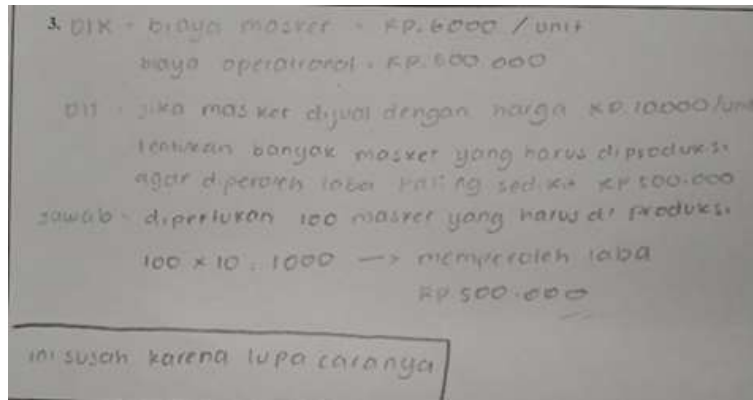 3. DIK - biaya masker = RP.6000 / unit
biaya operasional = RP. 500.000
DIT = jika masker dijual dengan harga RP.10.000/unit
tentukan banyak masker yang harus diproduksi
agar diperoleh laba paling sedikit RP 500.000
Jawab = diperlukan 100 masker yang harus di produksi
100 x 10 = 1000 → memperoleh laba
RP.500.000
ini susah karena lupa caranya